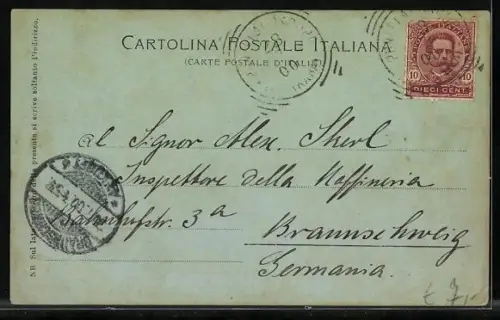 CARTOLINA POSTALE ITALIANA
(CARTE POSTALE D'ITALIE)
10 10
DIECI CENT.
al Signor Alex. Sherl
Inspettore della Raffineria
Bahnhofstr. 3a
Braunschweig
Germania.
NB. Sul lato della presente si scrive soltanto l'indirizzo.
€ 7,-